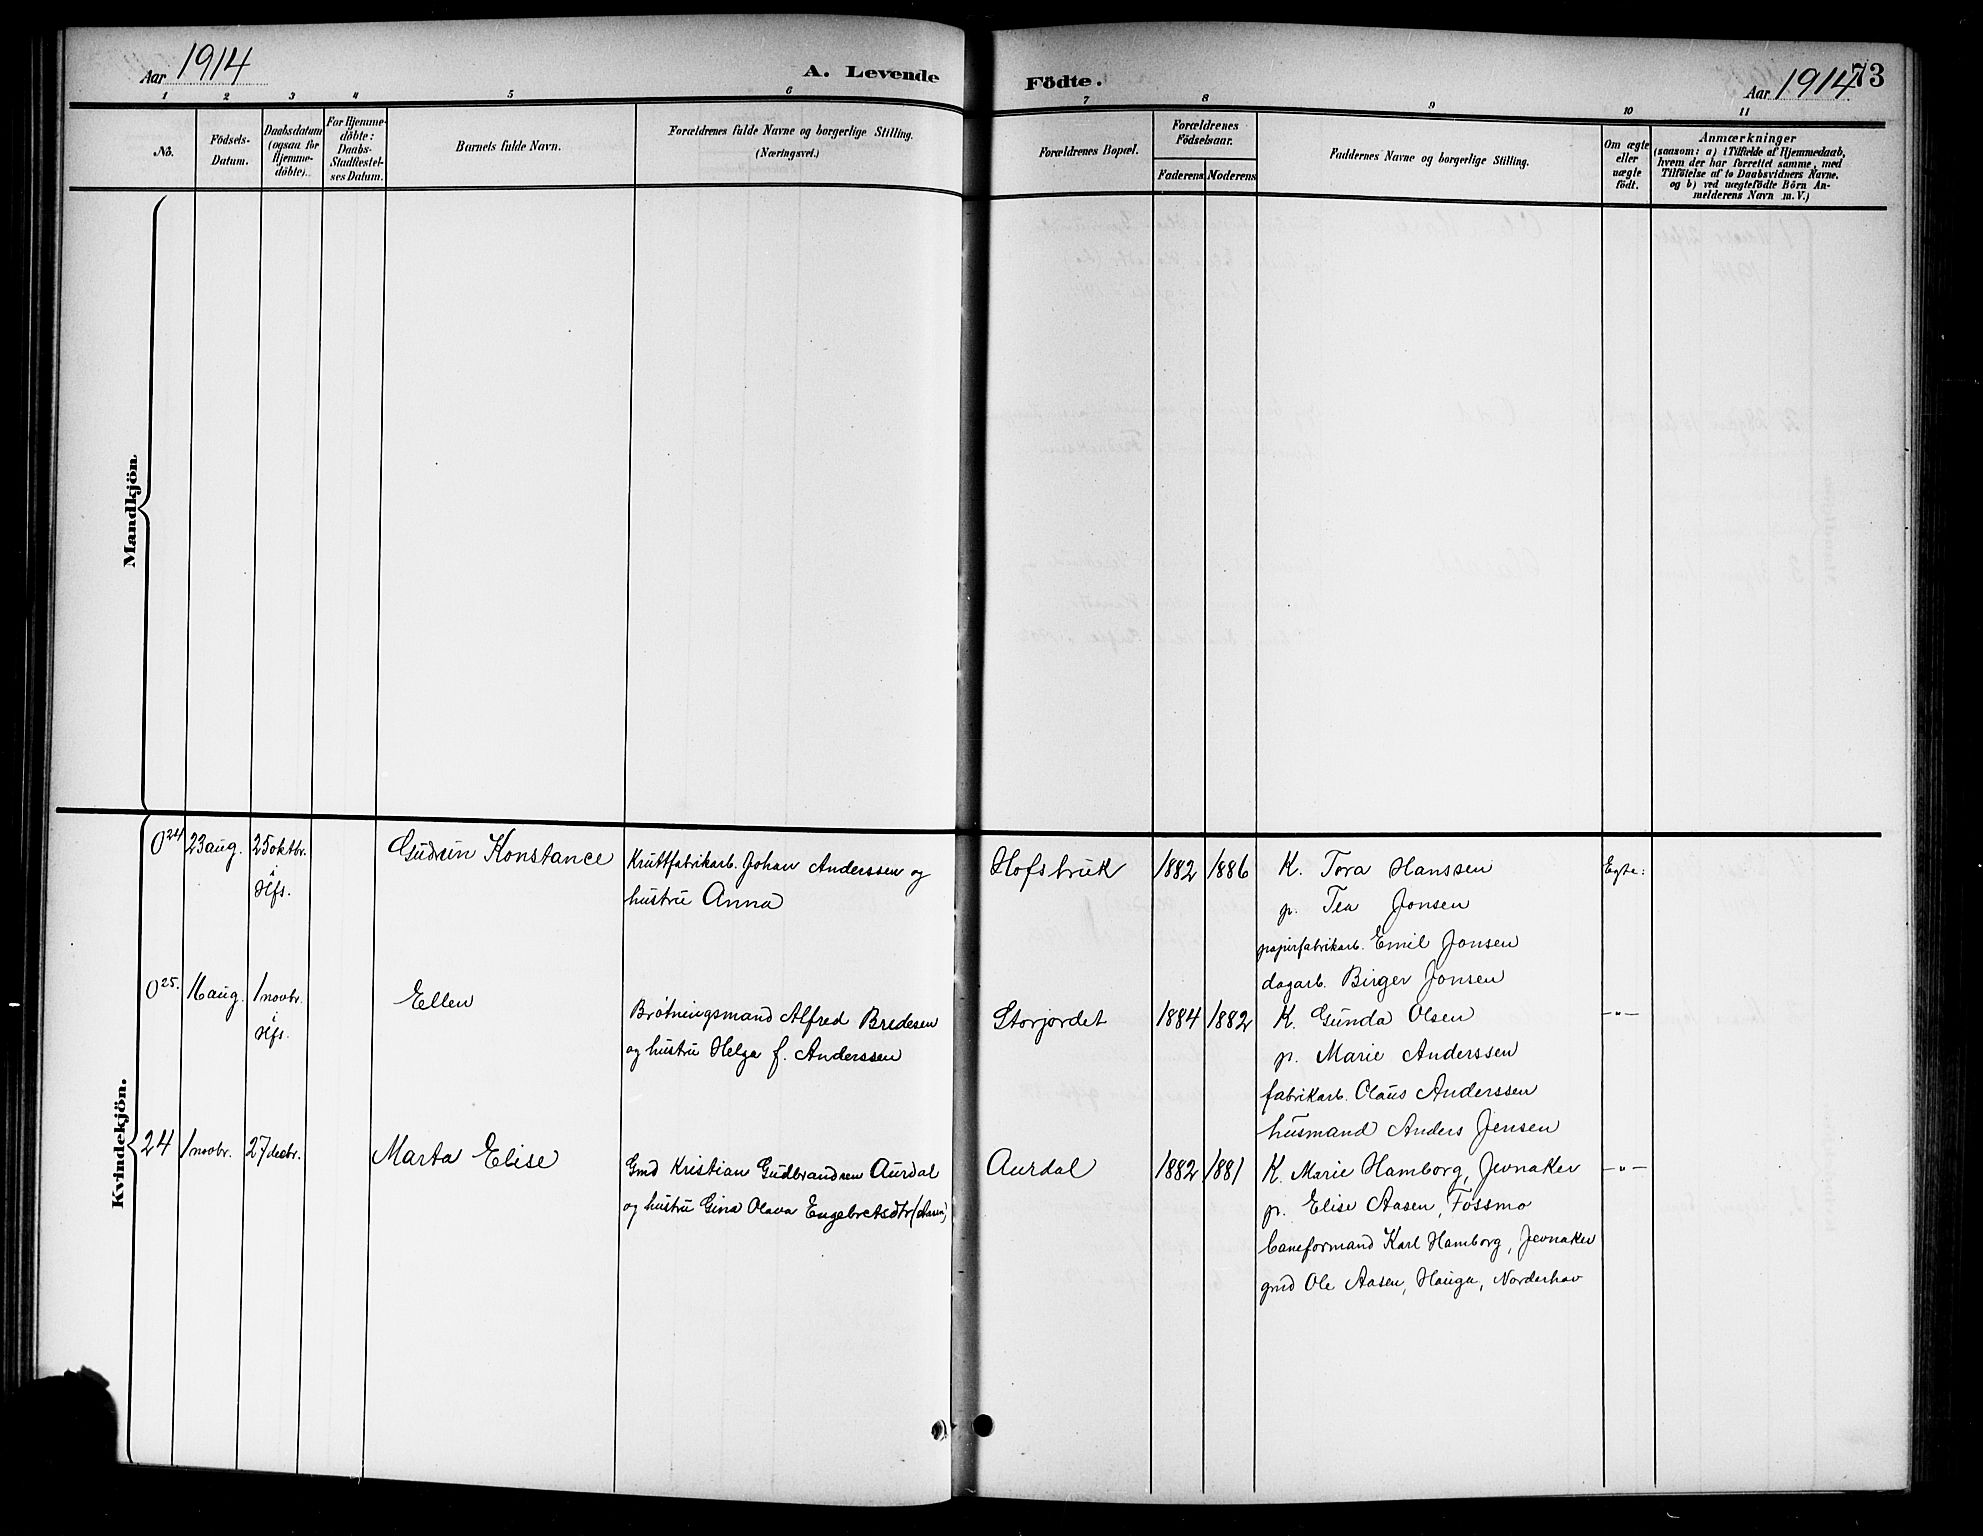 Aar 1914
A. Levende
Födte.
Aar 1914
73
1 2 3 4 5 6 7 8 9 10 11
No.
Födsels-
Datum.
Daabsdatum
(ogsaa för
Hjemme-
döbte).
For Hjemme-
döbte:
Daabs-
Stadfæstel-
ses Datum.
Barnets fulde Navn.
Forældrenes fulde Navne og borgerlige Stilling.
(Næringsvei.)
Forældrenes Bopæl.
Forældrenes
Födselsaar.
Faderens
Moderens
Faddernes Navne og borgerlige Stilling.
Om ægte
eller
uægte
födt.
Anmærkninger
(saasom: a) i Tilfælde af Hjemmedaab,
hvem der har forrettet samme, med
Tilföielse af to Daabsvidners Navne.
og b) ved uægtefödte Börn An-
melderens Navn m.V.)
Mandkjön
Kvindekjön.
0 24 23 aug. 25 oktbr.
i
Hfs.
Gudrun Konstance
Kruttfabrikarb. Johan Anderssen og
hustru Anna
Hofsbruk
1882 1886
K. Tora Hanssen
p. Tea Jonsen
papirfabrikarb. Emil Jonsen
dagarb. Birger Jonsen
Egte:
0 25. 16 aug. 1 novbr.
i
Hfs.
Ellen
Brøtningsmand Alfred Bredesen
og hustru Helga f. Anderssen
Storjordet
1884 1882
K. Gunda Olsen
p. Marie Anderssen
fabrikarb. Olaus Anderssen
husmand Anders Jensen
—"—
24 1 novbr. 27 decbr.
Marta Elise
Gmd Kristian Gudbrandsen Aurdal
og hustru Gina Olava Engebretsdtr (Aasen)
Aurdal
1882 1881
K. Marie Hamborg, Jevnaker
p. Elise Aasen, Fossmo
baneformand Karl Hamborg, Jevnaker
gmd Ole Aasen, Hauga, Norderhov
—"—